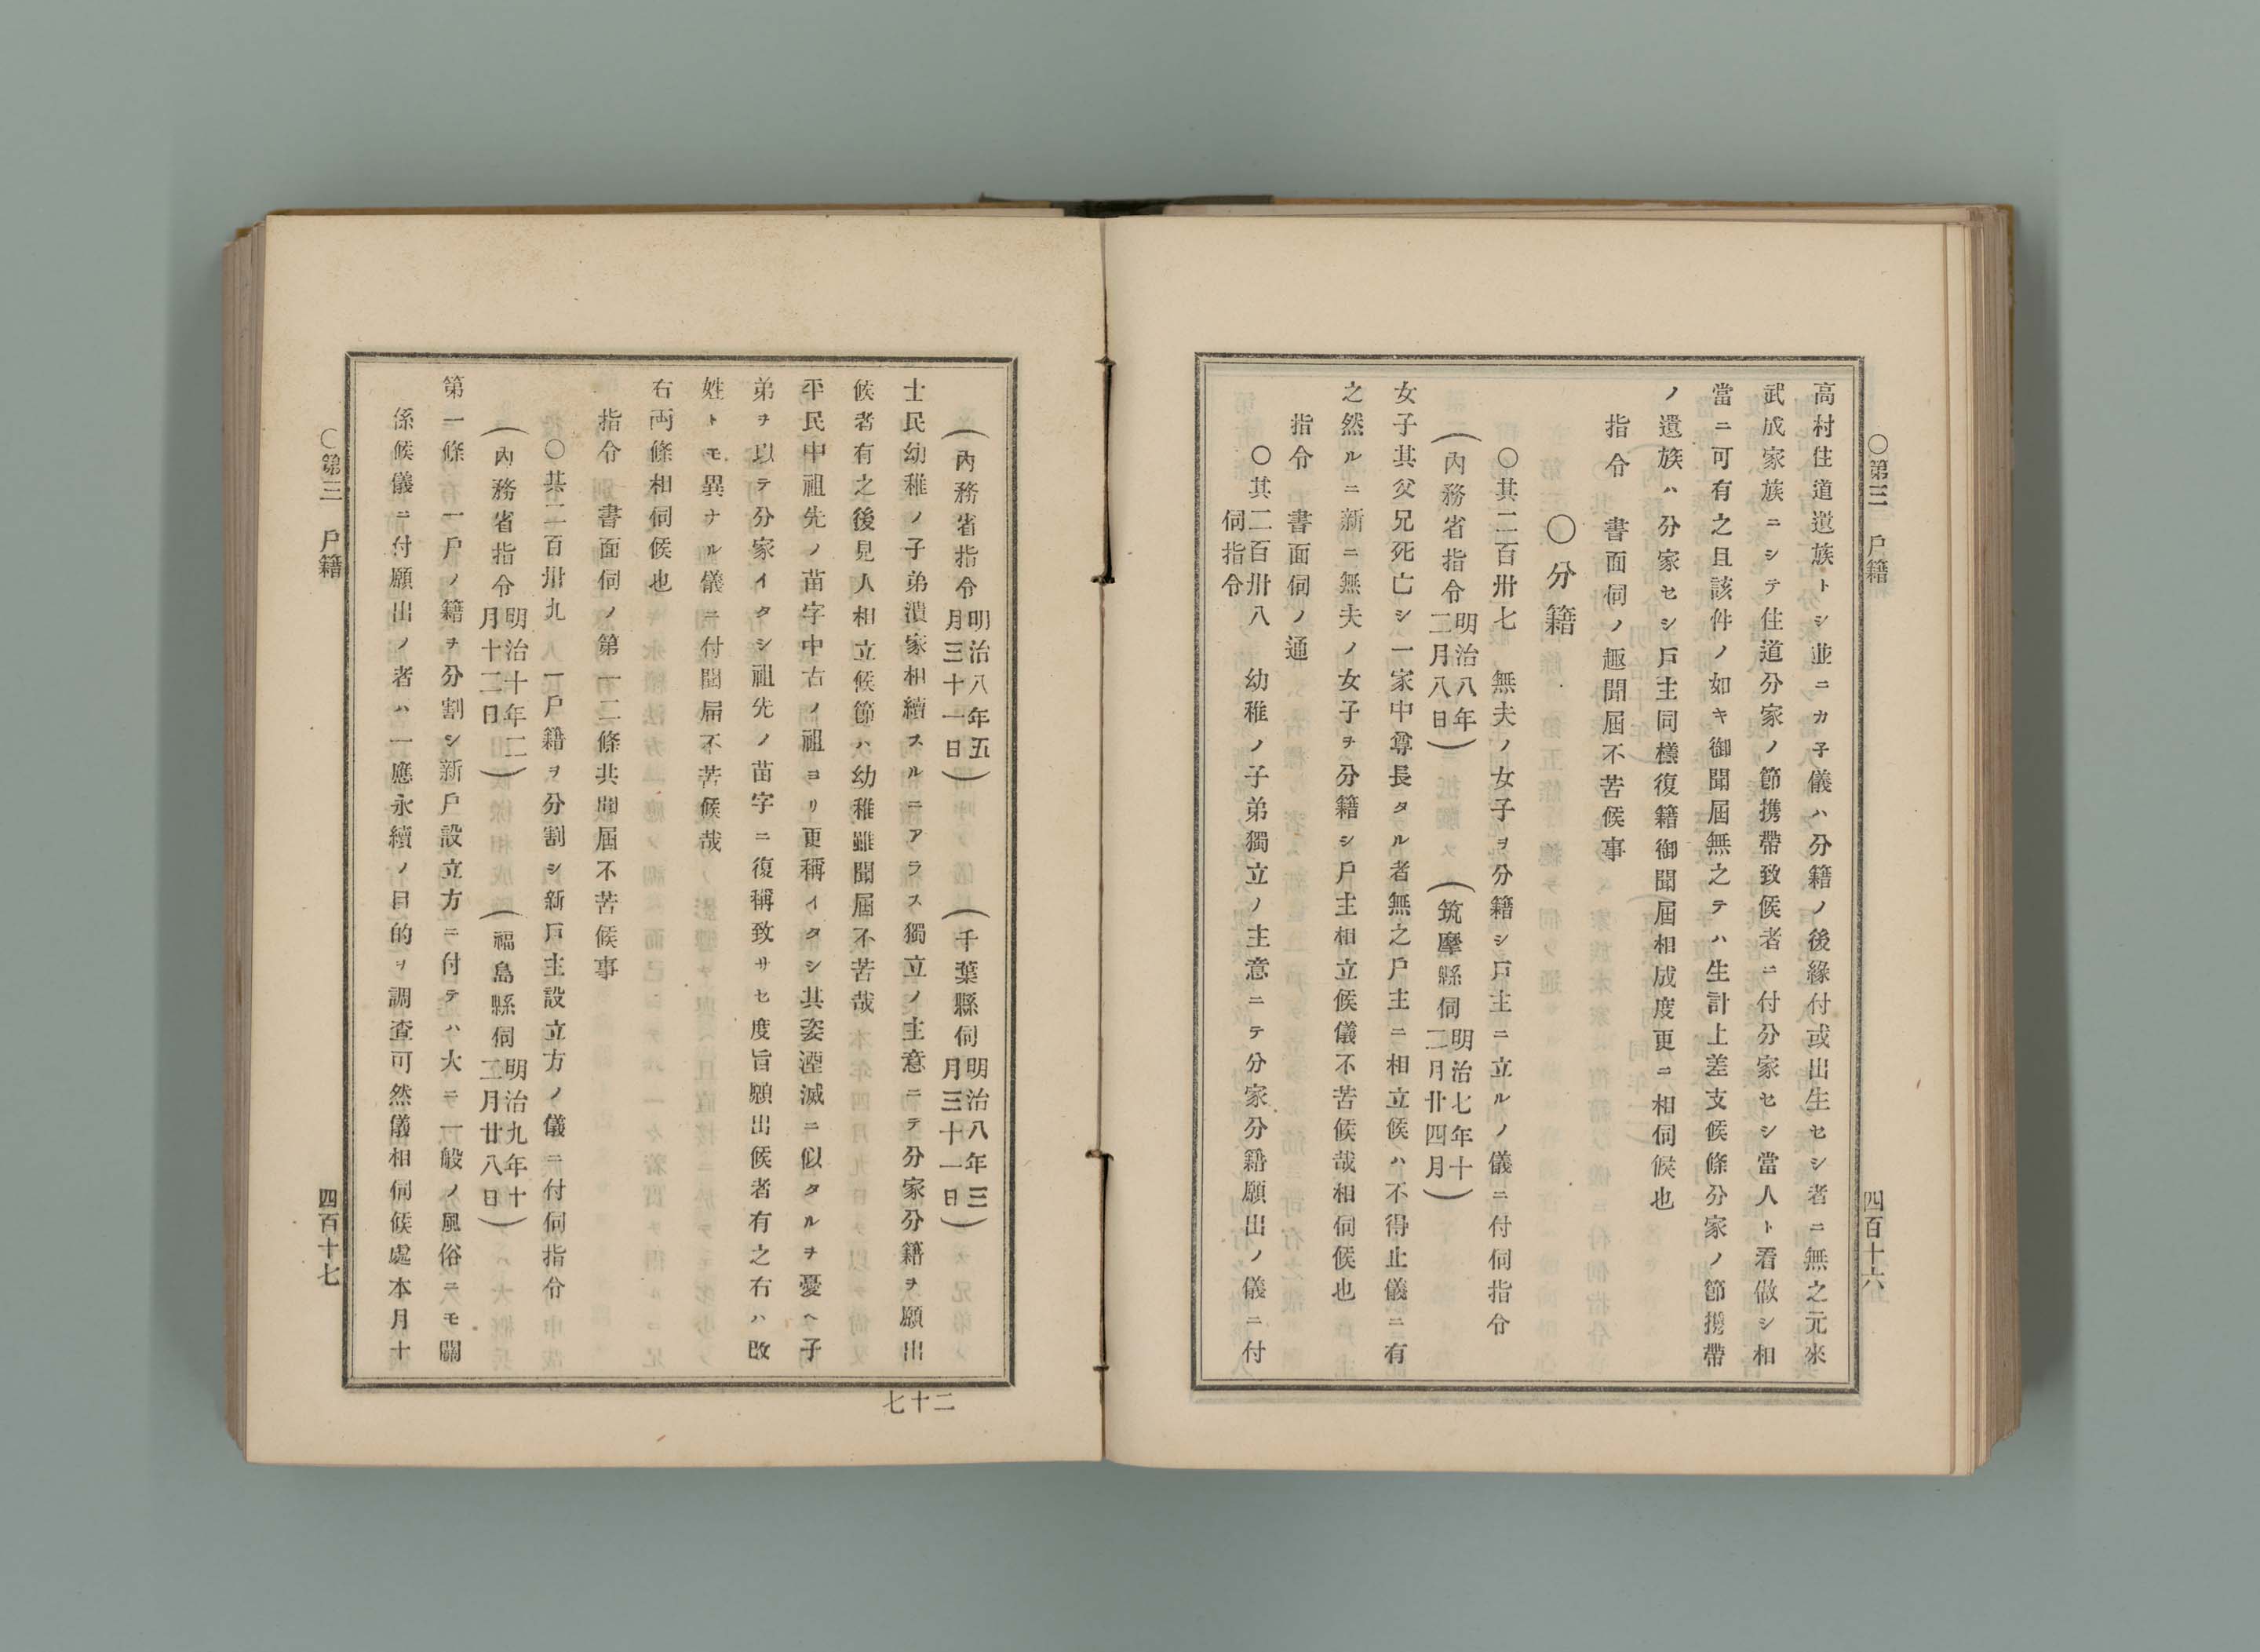 〇第三　戸籍　四百十六
高村住道遺族トシ並ニカ子儀ハ分籍ノ後緣付或出生セシ者ニ無之元來
武成家族ニシテ住道分家ノ節携帶致候者ニ付分家セシ當人ト看做シ相
當ニ可有之且該件ノ如キ御聞屆無之テハ生計上差支候條分家ノ節携帶
ノ遺族ハ分家セシ戸主同樣復籍御聞屆相成度更ニ相伺候也
指令　書面伺ノ趣聞屆不苦候事
〇分籍
〇其二百卅七　無夫ノ女子ヲ分籍シ戸主ニ立ルノ儀ニ付伺指令
（內務省指令明治八年二月八日）　（筑摩縣伺明治七年十二月廿四月）
女子其父兄死亡シ一家中尊長タル者無之戸主ニ相立候ハ不得止儀ニ有
之然ルニ新ニ無夫ノ女子ヲ分籍シ戸主相立候儀不苦候哉相伺候也
指令　書面伺ノ通
〇其二百卅八　幼稚ノ子弟獨立ノ主意ニテ分家分籍願出ノ儀ニ付
伺指令
（內務省指令明治八年五月三十一日）　（千葉縣伺明治八年三月三十一日）
士民幼稚ノ子弟潰家相續スルニアラス獨立ノ主意ニテ分家分籍ヲ願出
候者有之後見人相立候節ハ幼稚雖聞屆不苦哉
平民中祖先ノ苗字中古ノ祖ヨリ更稱イタシ其姿湮滅ニ似タルヲ憂ヘ子
弟ヲ以テ分家イタシ祖先ノ苗字ニ復稱致サセ度旨願出候者有之右ハ改
姓トモ異ナル儀ニ付聞屆不苦候哉
右両條相伺候也
指令　書面伺ノ第一二條共聞屆不苦候事
〇其二百卅九　一戸籍ヲ分割シ新戸主設立方ノ儀ニ付伺指令
（內務省指令明治十年二月十二日）　（福島縣伺明治九年十二月廿八日）
第一條　一戸ノ籍ヲ分割シ新戸設立方ニ付テハ大ニ一般ノ風俗ニモ關
係候儀ニ付願出ノ者ハ一應永續ノ目的ヲ調查可然儀相伺候處本月十
〇第三　戸籍　四百十七
二十七